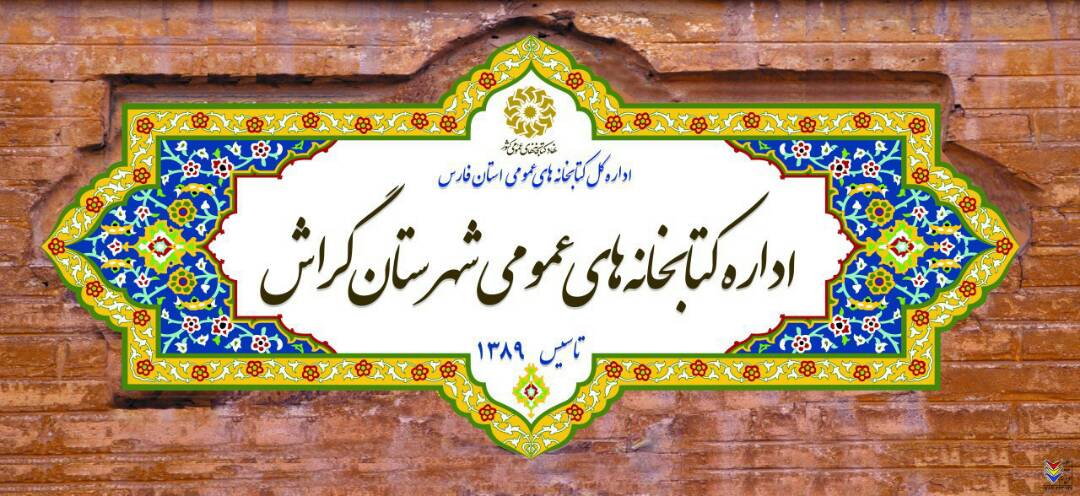 نهاد کتابخانه‌های عمومی کشور
اداره کل کتابخانه های عمومی استان فارس
اداره کتابخانه های عمومی شهرستان گراش
تاسیس ۱۳۸۹